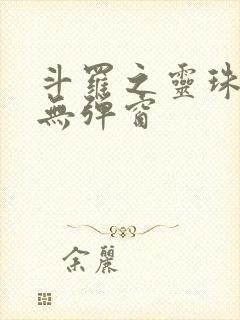 斗羅之靈珠
無彈窗
余麗